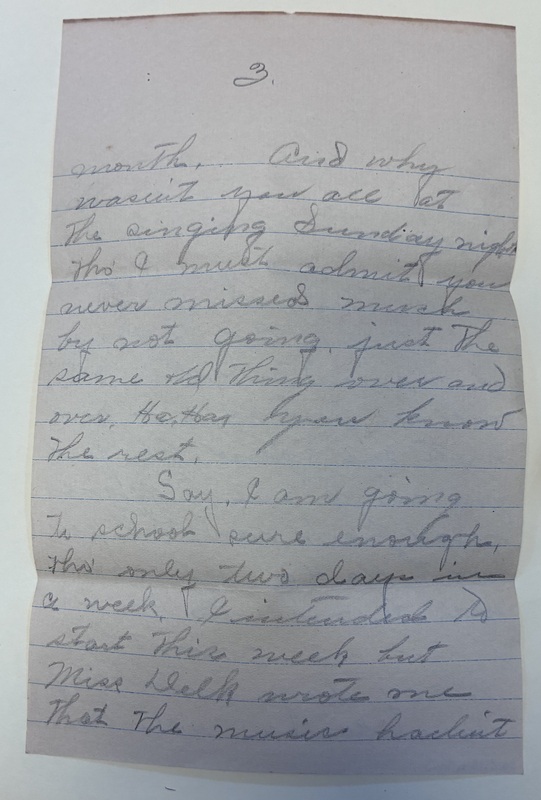 3.
month. And why
wasent you all at
the singing Sunday night
tho I must admit you
never missed much
by not going, just the
same old thing over and
over, Ha, Ha, you know
the rest.
Say, I am going
to school sure enough,
tho' only two days in
a week. I intended to
start this week but
Miss Delk wrote me
that the music hadent